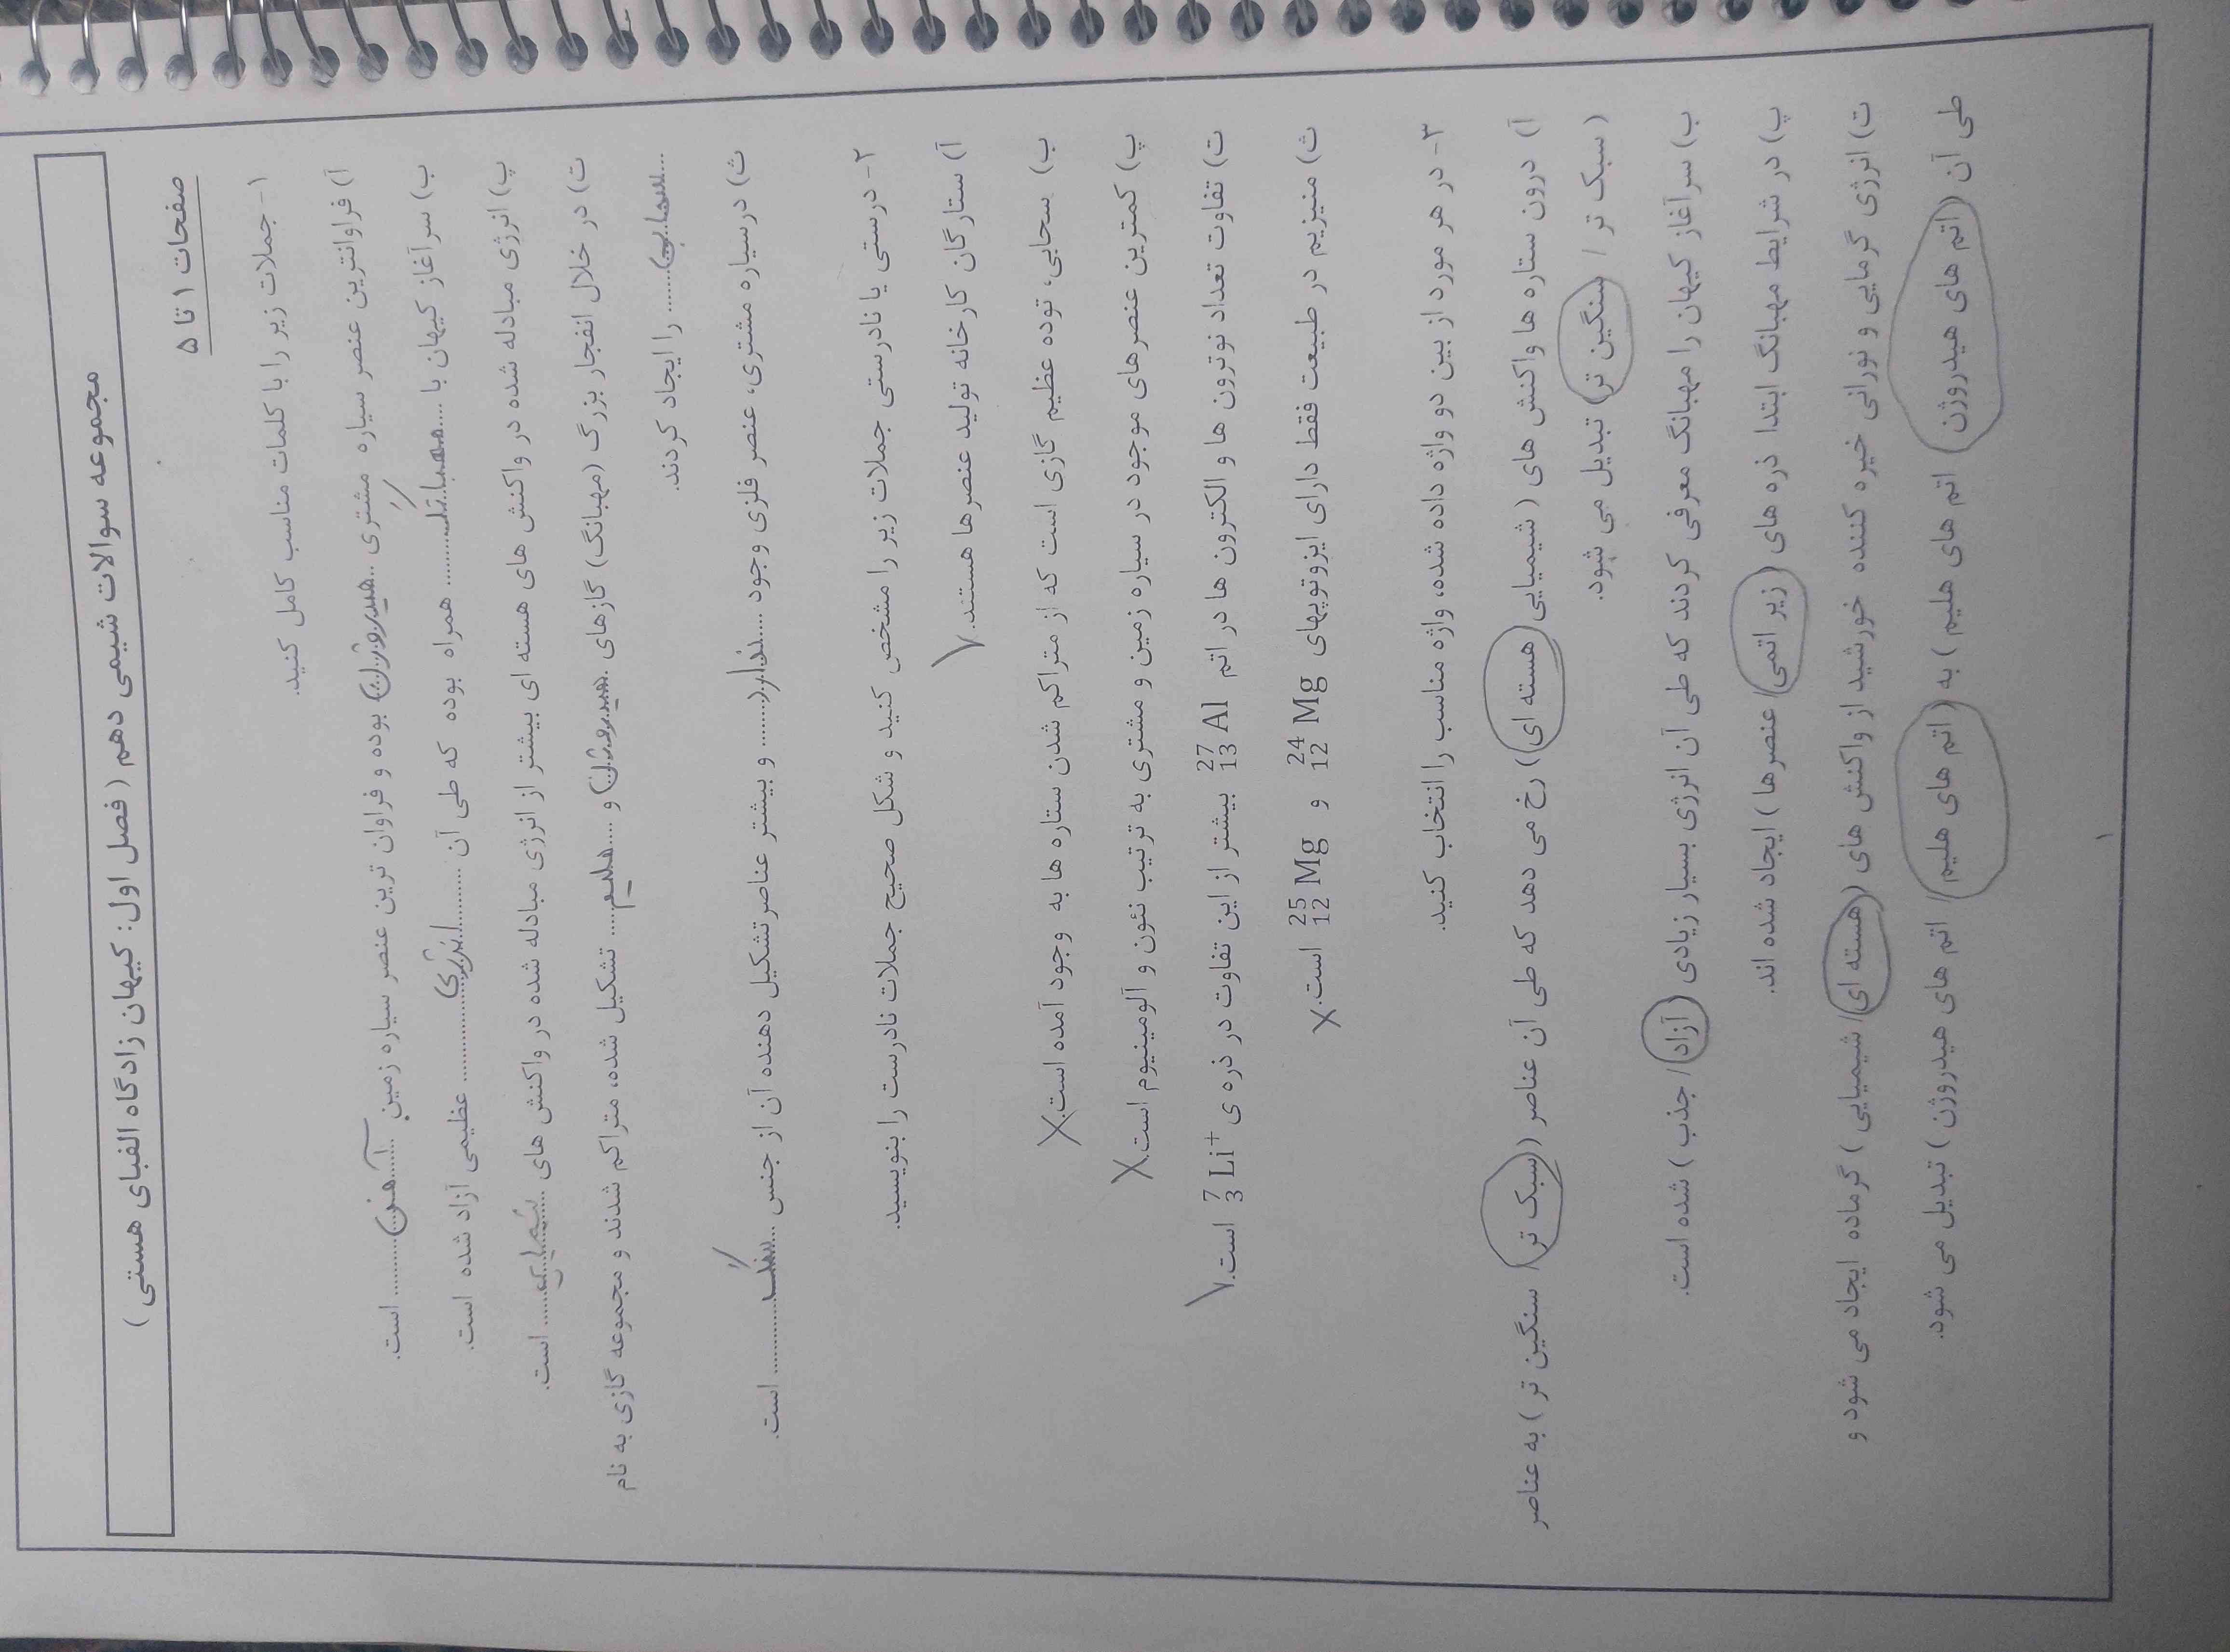 مجموعه سوالات شیمی دهم ( فصل اول: کیهان زادگاه الفبای هستی )
صفحات ۱ تا ۵
۱- جملات زیر را با کلمات مناسب کامل کنید.
آ) فراوانترین عنصر سیاره مشتری ..هیدروژن.. بوده و فراوان ترین عنصر سیاره زمین ....آهن.......... است.
ب) سرآغاز کیهان با ....مهبانگ........ همراه بوده که طی آن ..........انرژی.......... عظیمی آزاد شده است.
پ) انرژی مبادله شده در واکنش های هسته ای بیشتر از انرژی مبادله شده در واکنش های ....شیمیایی...... است.
ت) در خلال انفجار بزرگ (مهبانگ) گازهای ..هیدروژن.. و .....هلیم..... تشکیل شده، متراکم شدند و مجموعه گازی به نام
....سحابی...... را ایجاد کردند.
ث) درسیاره مشتری، عنصر فلزی وجود .....ندارد....... و بیشتر عناصر تشکیل دهنده آن از جنس ....سنگ.......... است.
۲- درستی یا نادرستی جملات زیر را مشخص کنید و شکل صحیح جملات نادرست را بنویسید.
آ) ستارگان کارخانه تولید عنصرها هستند. ✓
ب) سحابی، توده عظیم گازی است که از متراکم شدن ستاره ها به وجود آمده است. ✗
پ) کمترین عنصرهای موجود در سیاره زمین و مشتری به ترتیب نئون و آلومینیوم است. ✗
ت) تفاوت تعداد نوترون ها و الکترون ها در اتم ²⁷₁₃Al بیشتر از این تفاوت در ذره ی ⁷₃Li⁺ است. ✓
ث) منیزیم در طبیعت فقط دارای ایزوتوپهای ²⁴₁₂Mg و ²⁵₁₂Mg است. ✗
۳- در هر مورد از بین دو واژه داده شده، واژه مناسب را انتخاب کنید.
آ) درون ستاره ها واکنش های ( شیمیایی/ هسته ای) رخ می دهد که طی آن عناصر (سبک تر/ سنگین تر ) به عناصر
( سبک تر / سنگین تر) تبدیل می شود.
ب) سرآغاز کیهان را مهبانگ معرفی کردند که طی آن انرژی بسیار زیادی ( آزاد/ جذب ) شده است.
پ) در شرایط مهبانگ ابتدا ذره های ( زیر اتمی/ عنصرها ) ایجاد شده اند.
ت) انرژی گرمایی و نورانی خیره کننده خورشید از واکنش های (هسته ای/ شیمیایی ) گرماده ایجاد می شود و
طی آن (اتم های هیدروژن/ اتم های هلیم ) به (اتم های هلیم/ اتم های هیدروژن ) تبدیل می شود.
۱